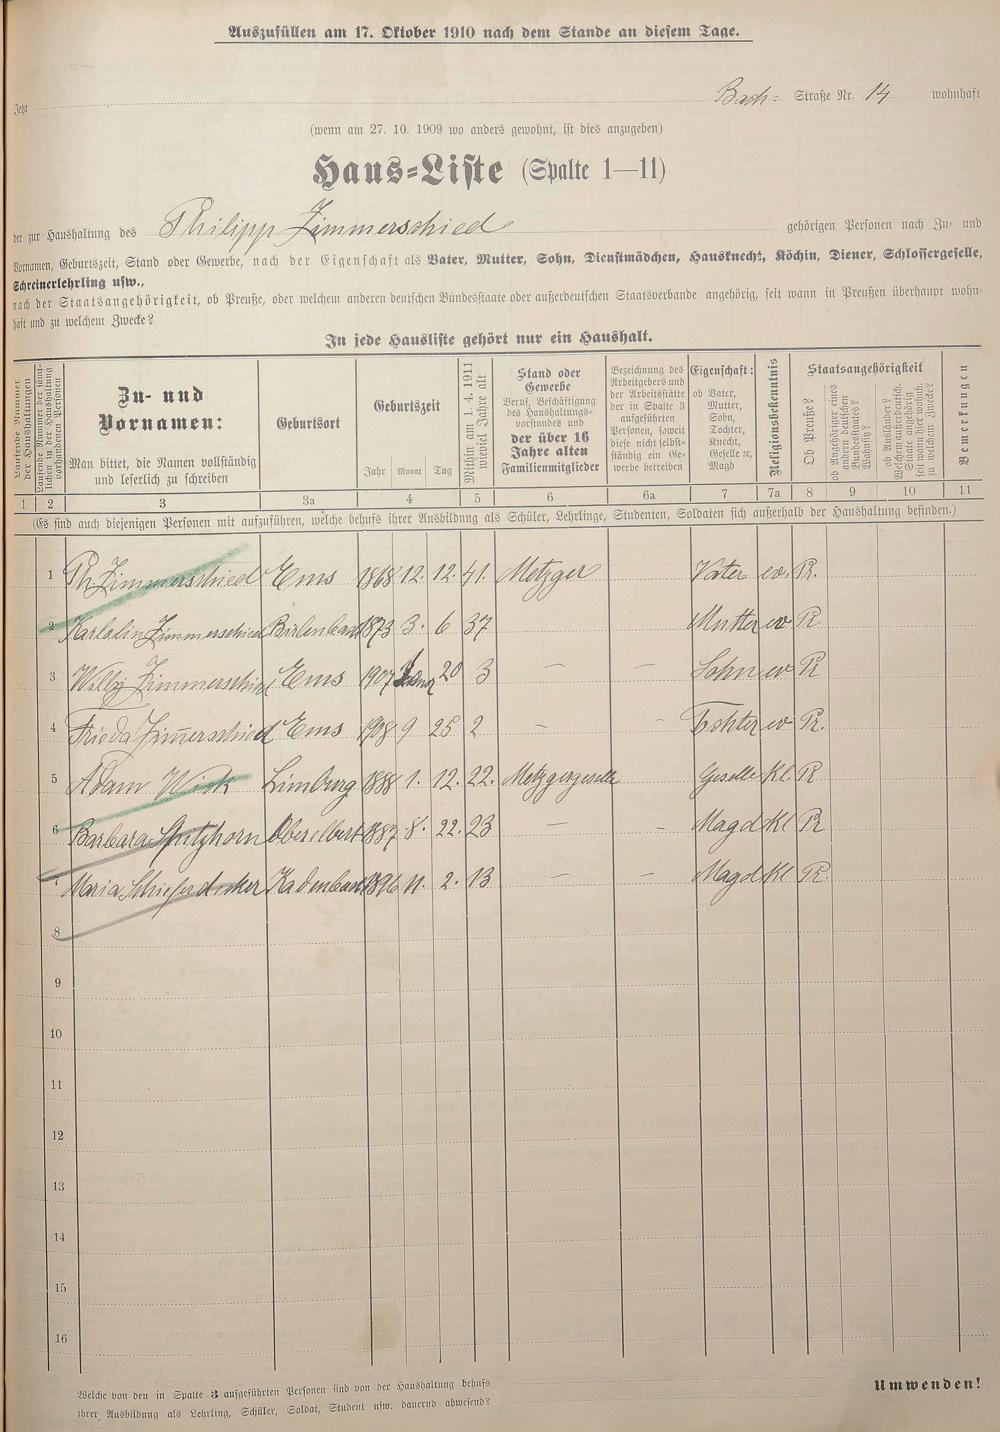 Auszufüllen am 17. Oktober 1910 nach dem Stande an diesem Tage.
Jetzt Bach- Straße Nr. 14 wohnhaft
(wenn am 27. 10. 1909 wo anders gewohnt, ist dies anzugeben)
Haus-Liste (Spalte 1—11)
der zur Haushaltung des Philipp Zimmerschied gehörigen Personen nach Zu- und
Vornamen, Geburtszeit, Stand oder Gewerbe, nach der Eigenschaft als Vater, Mutter, Sohn, Dienstmädchen, Hausknecht, Köchin, Diener, Schlossergeselle,
Schreinerlehrling usw.,
nach der Staatsangehörigkeit, ob Preuße, oder welchem anderen deutschen Bundesstaate oder außerdeutschen Staatsverbande angehörig, seit wann in Preußen überhaupt wohn-
haft und zu welchem Zwecke?
In jede Hausliste gehört nur ein Haushalt.
Laufende Nummer der Haushaltungen
Laufende Nummer der sämt-
lichen in der Haushaltung
vorhandenen Personen
Zu- und
Vornamen:
Man bittet, die Namen vollständig
und leserlich zu schreiben
Geburtsort
Geburtszeit
Jahr Monat Tag
Mithin am 1. 4. 1911
wieviel Jahre alt
Stand oder
Gewerbe
Beruf, Beschäftigung
des Haushaltungs-
vorstandes und
der über 16
Jahre alten
Familienmitglieder
Bezeichnung des
Arbeitgebers und
der Arbeitsstätte
der in Spalte 3
aufgeführten
Personen, soweit
diese nicht selbst-
ständig ein Ge-
werbe betreiben
Eigenschaft:
ob Vater,
Mutter,
Sohn,
Tochter,
Knecht,
Geselle ꝛc,
Magd
Religionsbekenntnis
Staatsangehörigkeit
Ob Preuße?
ob Angehöriger eines
andern deutschen
Bundesstaates?
Wohnsitz?
ob Ausländer?
Welchem außerdeutsch.
Staate angehörig
seit wann hier wohnh.
zu welchem Zwecke?
Bemerkungen
1 2 3 3a 4 5 6 6a 7 7a 8 9 10 11
(Es sind auch diejenigen Personen mit aufzuführen, welche behufs ihrer Ausbildung als Schüler, Lehrlinge, Studenten, Soldaten sich außerhalb der Haushaltung befinden.)
1 Ph. Zimmerschied Ems 1868 12. 12. 41. Metzger Vater ev. Pr.
2 Zimmerschied Birlenbach 1873 3. 6 37 Mutter ev Pr
3 Willy Zimmerschied Ems 1907 20 3 — — Sohn ev Pr
4 Frieda Zimerschied Ems 1908 9 25 2 — — Tochter ev Pr.
5 Adam Limburg 1888 1. 12. 22. Metzgergeselle Geselle Kt. Pr
6 Barbara Oberelbert 1887 8. 22. 23 — — Magd Kt Pr
7 Maria Schieferdecker Kadenbach 1896 11. 2. 13 — — Magd Kt Pr.
8
9
10
11
12
13
14
15
16
Welche von den in Spalte 3 aufgeführten Personen sind von der Haushaltung behufs
ihrer Ausbildung als Lehrling, Schüler, Soldat, Student usw. dauernd abwesend?
Umwenden!